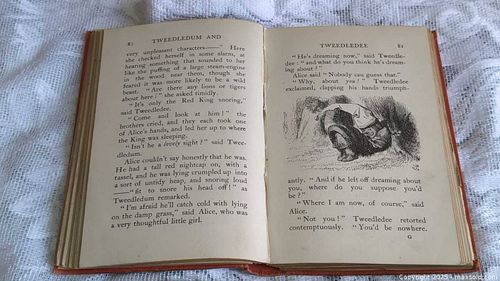 82 TWEEDLEDUM AND
very unpleasant characters——" Here
she checked herself in some alarm, at
hearing something that sounded to her
like the puffing of a large steam-engine
in the wood near them, though she
feared it was more likely to be a wild
beast. "Are there any lions or tigers
about here?" she asked timidly.
"It's only the Red King snoring,"
said Tweedledee.
"Come and look at him!" the
brothers cried, and they each took one
of Alice's hands, and led her up to where
the King was sleeping.
"Isn't he a lovely sight?" said Twee-
dledum.
Alice couldn't say honestly that he was.
He had a tall red nightcap on, with a
tassel, and he was lying crumpled up into
a sort of untidy heap, and snoring loud
——"fit to snore his head off!" as
Tweedledum remarked.
"I'm afraid he'll catch cold with lying
on the damp grass," said Alice, who was
a very thoughtful little girl.
TWEEDLEDEE
"He's dreaming now," said Tweedle-
dee: "and what do you think he's dream-
ing about?"
Alice said "Nobody can guess that."
"Why, about you!" Tweedledee
exclaimed, clapping his hands triumph-
antly. "And if he left off dreaming about
you, where do you suppose you'd
be?"
"Where I am now, of course," said
Alice.
"Not you!" Tweedledee retorted
contemptuously. "You'd be nowhere.
G